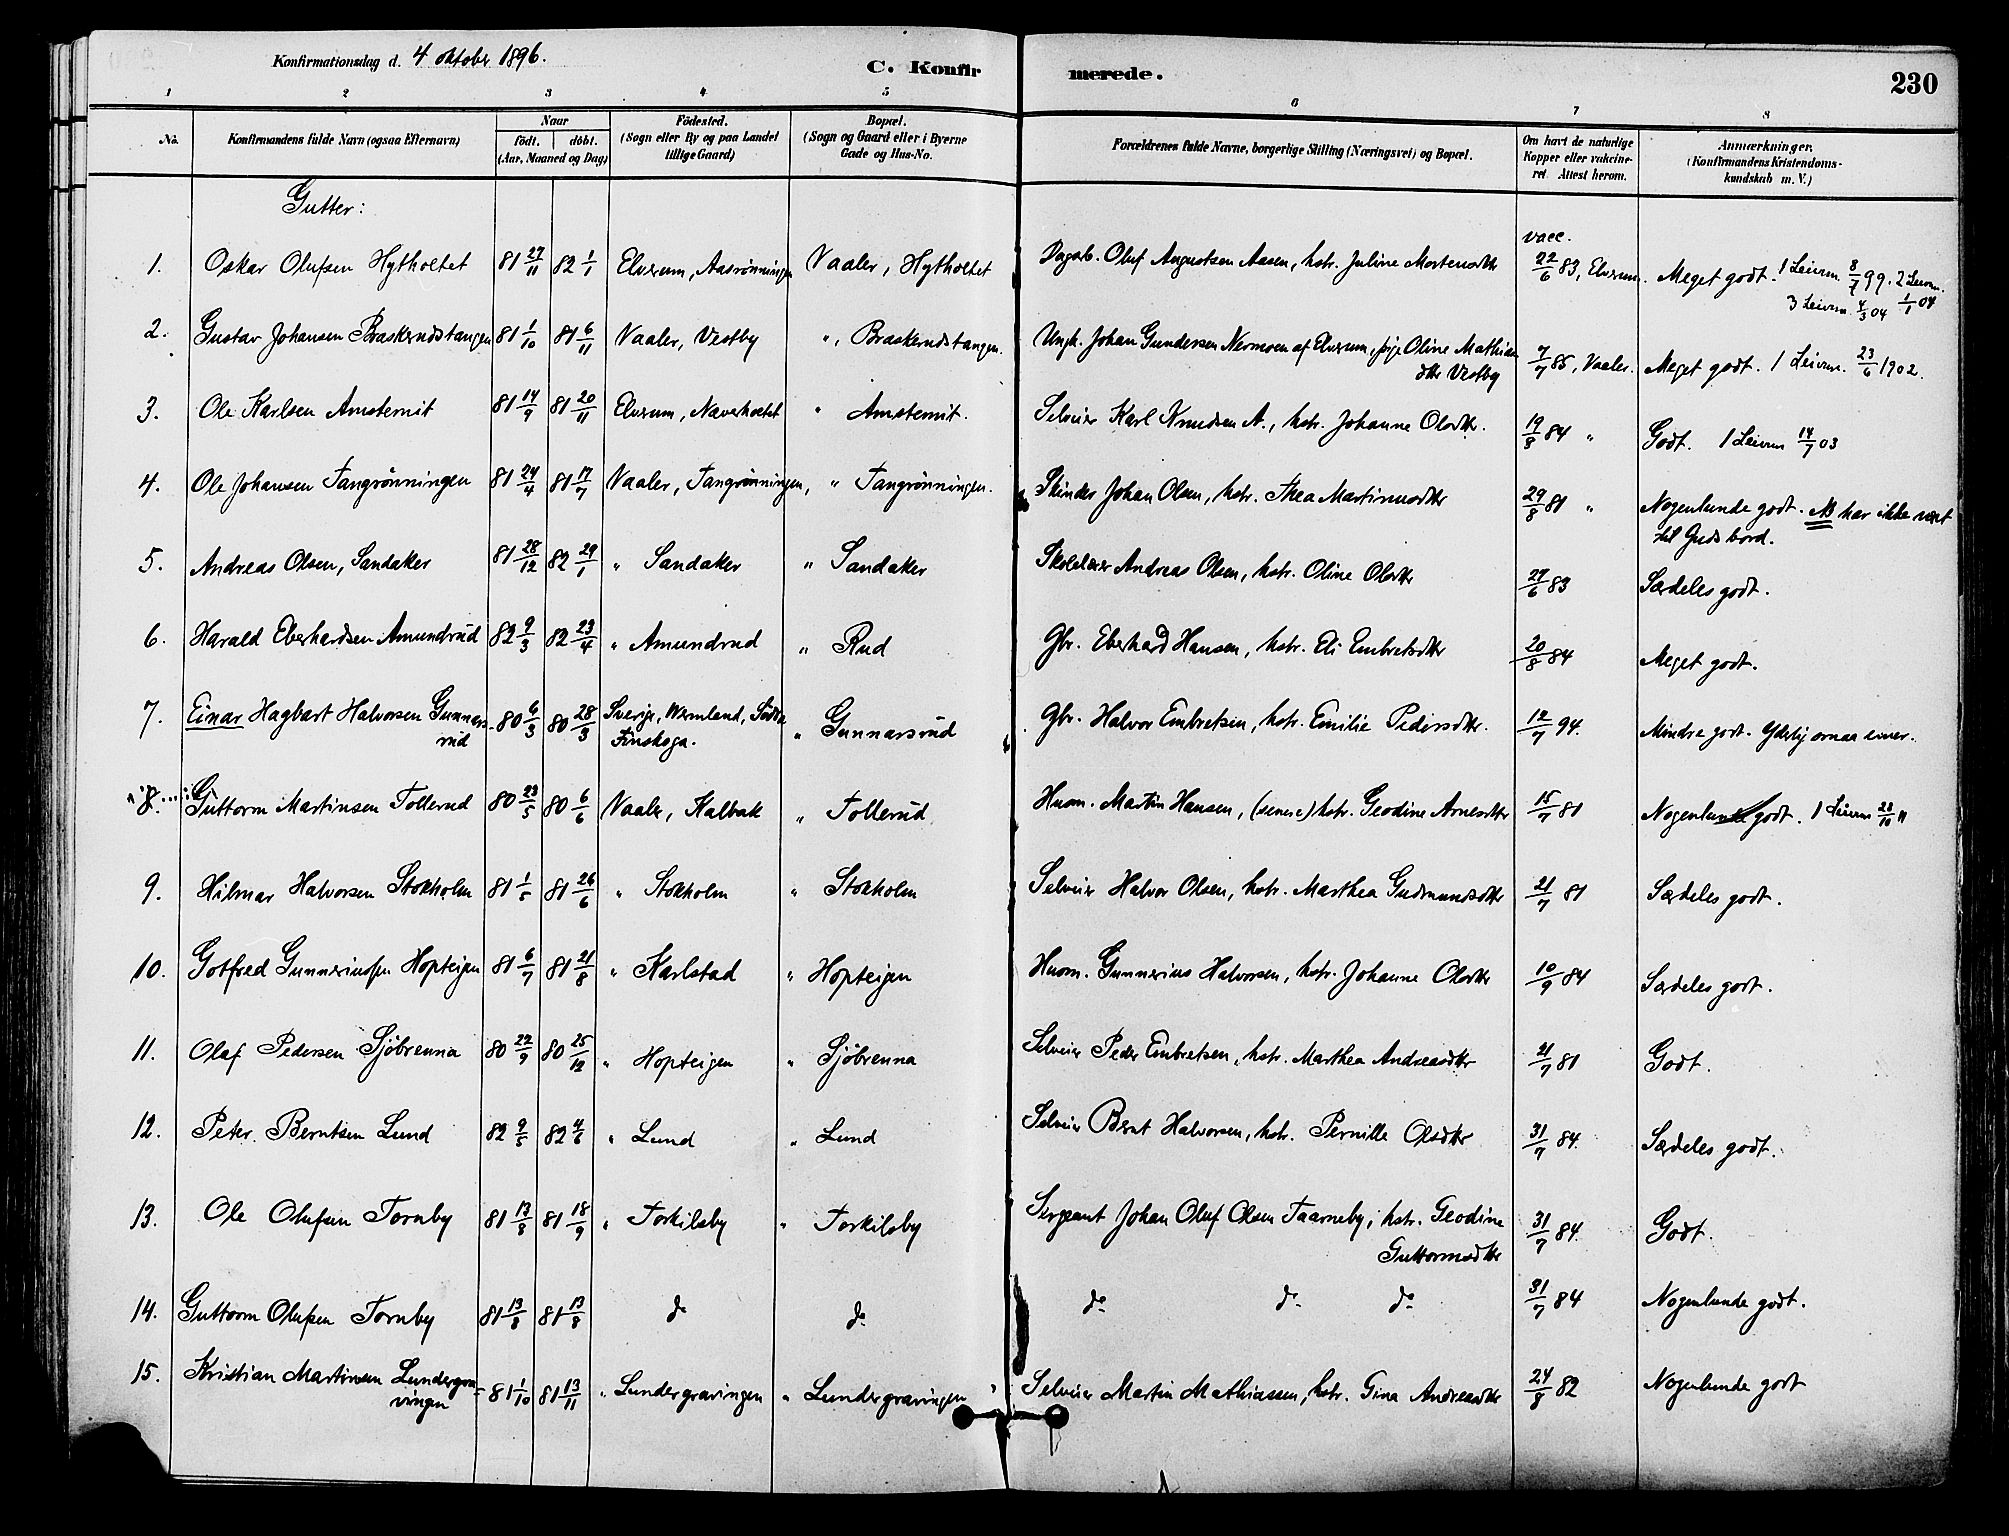 Konfirmationsdag d. 4 oktober 1896.
C. Konfirmerede.
230
1 2 3 4 5 6 7 8
No. Konfirmandens fulde Navn (ogsaa Efternavn) Naar födt. döbt. (Aar, Maaned og Dag) Födested. (Sogn eller By og paa Landet tillige Gaard) Bopæl. (Sogn og Gaard eller i Byerne Gade og Hus-No. Forældrenes fulde Navne, borgerlige Stilling (Næringsvei) og Bopæl. Om havt de naturlige Kopper eller vakcineret. Attest herom. Anmærkninger. (Konfirmandens Kristendomskundskab m. V.)
Gutter:
1. Oskar Olufsen Hytholtet 81 27/11 82 1/1 Elverum, Aasrønningen Vaaler, Hytholtet Dagarb. Oluf Augustsen Aasen, hstr. Juline Mortensdtr vacc. 22/6 83, Elverum. Meget godt. 1 Leierm. 8/7 99. 2 Leierm. 1/1 04 3 Leierm. 4/3 04
2. Gustav Johansen Braskerudstangen 81 1/10 81 6/11 Vaaler, Vestby ", Braskerudstangen. Ungk. Johan Gundersen Nermoen af Elverum, pige Oline Mathiasdtr Vestby 7/7 85, Vaaler. Meget godt. 1 Leierm. 23/6 1902.
3. Ole Karlsen Amstemit 81 14/9 81 20/11 Elverum, Næverholtet " Amstemit. Selveier Karl Knudsen A., hstr. Johanne Olsdtr. 19/8 84 " Godt. 1 Leierm 14/7 03
4. Ole Johansen Tangrønningen 81 24/4 81 17/7 Vaaler, Tangrønningen, " Tangrønningen. Skinder Johan Olsen, hstr. Thea Martinusdtr 29/8 81 " Nogenlunde godt. NB har ikke vært til Guds bord.
5. Andreas Olsen, Sandaker 81 28/12 82 29/1 " Sandaker " Sandaker Skolelærer Andreas Olsen, hstr. Oline Olsdtr 27/6 83 Særdeles godt.
6. Harald Eberhardsen Amundrud 82 9/3 82 23/4 " Amundrud " Rud Gbr. Eberhard Hansen, hstr. Eli Embretsdtr 20/8 84 Meget godt.
7. Einar Hagbart Halvorsen Gunnarsrud 80 6/3 80 28/3 Sverige, Wermland, Södra Finskoga. " Gunnarsrud Gbr. Halvor Embretsen, hstr. Emilie Pedersdtr. 12/7 94. Mindre godt.
8. Guttorm Martinsen Tollerud 80 23/5 80 6/6 Vaaler, Kalbak " Tollerud Husm. Martin Hansen, (senere) hstr. Geodine Arnesdtr 15/7 81 Nogenlunde godt. 1 Leierm 23/10 11
9. Hilmar Halvorsen Stokholm 81 1/5 81 26/6 " Stokholm " Stokholm Selveier Halvor Olsen, hstr. Marthea Gudmundsdtr 21/7 81 Særdeles godt.
10. Gotfred Gunneriussen Hopteigen 81 6/7 81 21/8 " Karlstad " Hopteigen Husm. Gunnerius Halvorsen, hstr. Johanne Olsdtr 10/9 84 Særdeles godt.
11. Olaf Pedersen Sjöbrenna 80 22/9 80 25/12 " Hopteigen " Sjöbrenna Selveier Peder Embretsen, hstr. Marthea Andreasdtr 21/7 81 Godt.
12. Peter Berntsen Lund 82 9/5 82 4/6 " Lund " Lund Selveier Bernt Halvorsen, hstr. Pernille Olsdtr 31/7 84. Særdeles godt.
13. Ole Olufsen Tornby 81 13/8 81 18/9 " Torkilsby " Torkilsby Sergeant Johan Oluf Olsen Taarneby, hstr. Geodine Guttormsdtr 31/7 84. Godt.
14. Guttorm Olufsen Tornby 81 13/8 81 13/8 do do do do do 31/7 84 Nogenlunde godt.
15. Kristian Martinsen Lundergravingen 81 1/10 81 13/11 " Lundergravingen " Lundergravingen Selveier Martin Mathiassen, hstr. Gina Andreasdtr 24/8 82 Nogenlunde godt